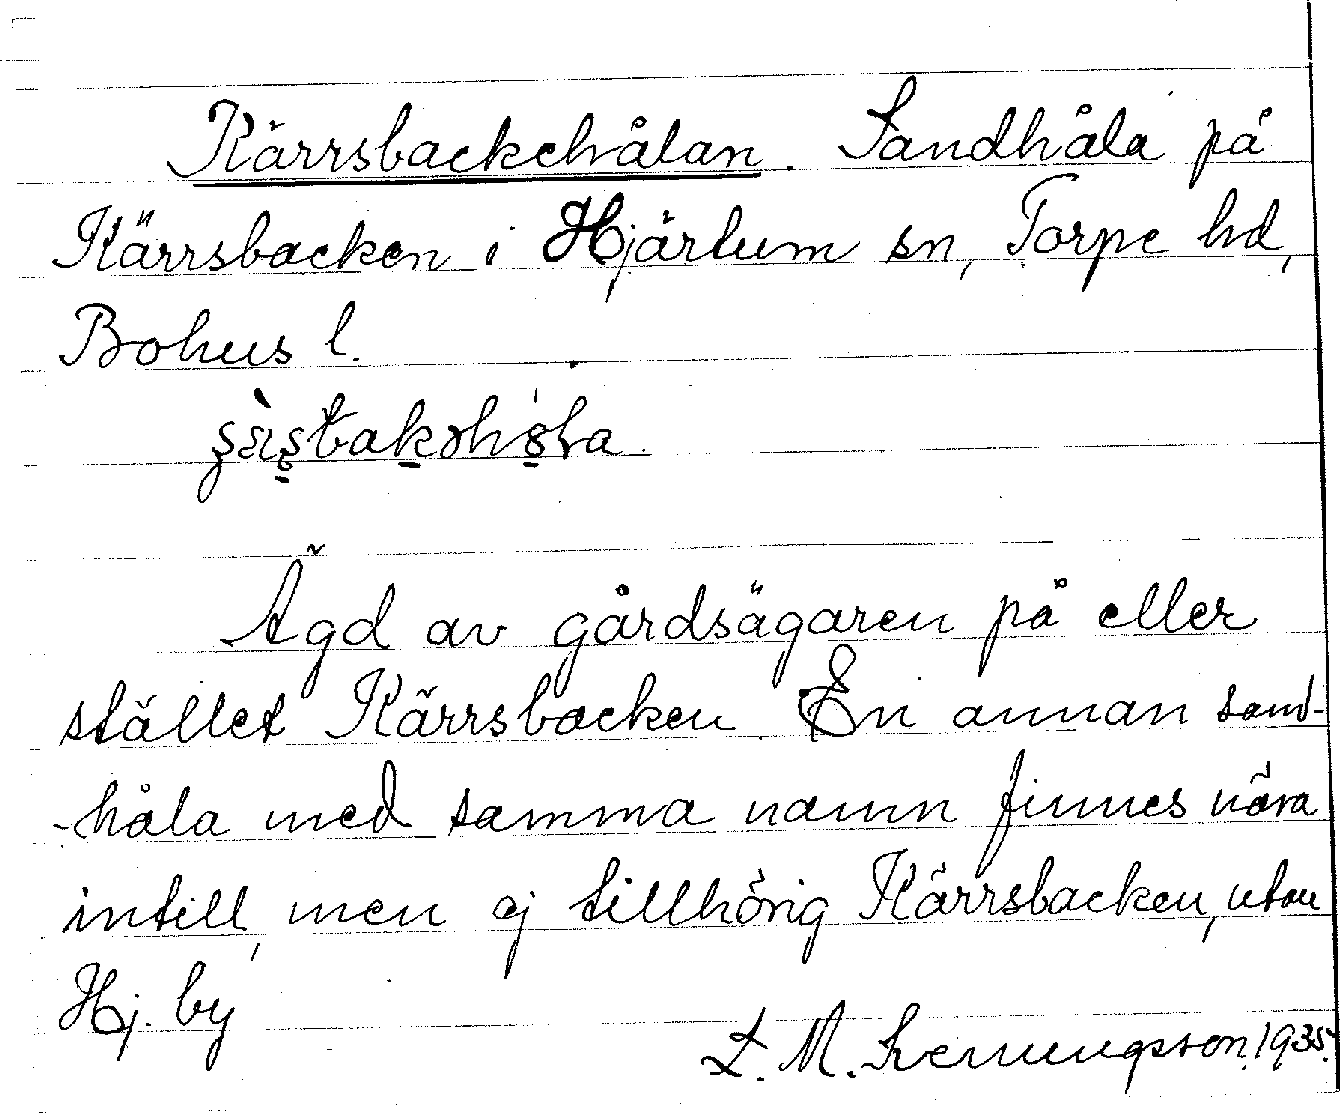 Kärrsbackehålan. Sandhåla på
Kärrsbacken i Hjärtum sn, Torpe hd,
Bohus l.
Ägd av gårdsägaren på eller
stället Kärrsbacken. En annan sand-
-håla med samma namn finnes nära
intill, men ej tillhörig Kärrsbacken, utan
Hj. by
L. M. 1935.